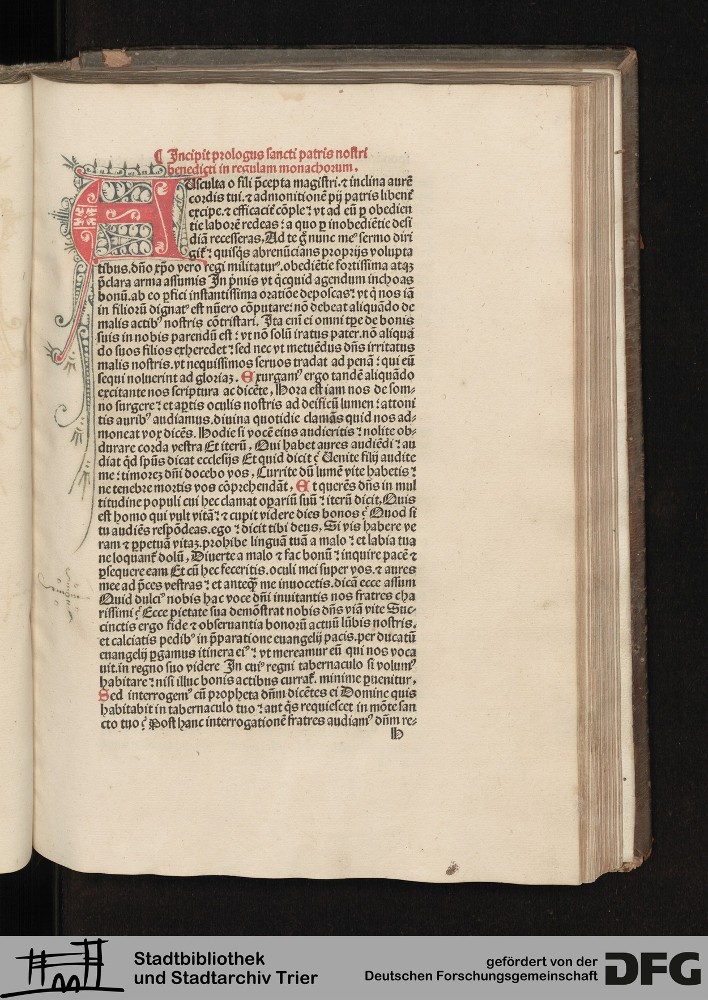 ¶ Incipit prologus sancti patris nostri
benedicti in regulam monachorum.
AUsculta o fili p̃cepta magistri. ⁊ inclina aurē
cordis tui. ⁊ admonitionē pij patris libent̃
excipe. ⁊ efficacit̃ cōple: vt ad eū ꝑ obedien
tie laborē redeas: a quo ꝑ inobediētie desi
diā recesseras. Ad te g̃ nunc me⁹ sermo diri
git̃: quisq̇s abrenūcians proprijs volupta
tibus. dn̄o xp̄o vero regi militatur⁹. obediētie fortissima atqꝫ
p̃clara arma assumis In p̃mis vt q̇cquid agendum inchoas
bonū. ab eo ꝑfici instantissima oratiōe deposcas: vt q̇ nos iā
in filiorū dignat⁹ est nūero cōputare: nō debeat aliquādo de
malis actib⁹ nostris cōtristari. Ita em̄ ei omni tꝑe de bonis
suis in nobis parendū est: vt nō solū iratus pater. nō aliquā
do suos filios exheredet: sed nec vt metuēdus dn̄s irritatus
malis nostris. vt nequissimos seruos tradat ad penā: qui eū
sequi noluerint ad gloriaꝫ. Exurgam⁹ ergo tandē aliquādo
excitante nos scriptura ac dicēte, Hora est iam nos de som-
no surgere: et aꝑtis oculis nostris ad deificū lumen: attoni
tis aurib⁹ audiamus. diuina quotidie clamās quid nos ad-
moneat vox dicēs. Hodie si vocē eius audieritis: nolite ob-
durare corda vestra Et iterū, Qui habet aures audiēdi: au
diat q̇d sp̄us dicat ecclesijs Et quid dicit? Uenite filij audite
me: timoreꝫ dn̄i docebo vos, Currite dū lumē vite habetis:
ne tenebre mortis vos cōprehendāt, Et querēs dn̄s in mul
titudine populi cui hec clamat oꝑariū suū: iterū dicit, Quis
est homo qui vult vitā: ⁊ cupit videre dies bonos? Quod si
tu audiēs respōdeas. ego: dicit tibi deus, Si vis habere ve
ram ⁊ ꝑpetuā vitaꝫ. prohibe linguā tuā a malo: et labia tua
ne loquant̃ dolū, Diuerte a malo ⁊ fac bonū: inquire pacē ⁊
ꝑsequere eam Et cū hec feceritis. oculi mei super vos. ⁊ aures
mee ad p̃ces vestras: et anteq̄ꝫ me inuocetis. dicā ecce assum
Quid dulci⁹ nobis hac voce dn̄i inuitantis nos fratres cha
rissimi? Ecce pietate sua demōstrat nobis dn̄s viā vite Suc-
cinctis ergo fide ⁊ obseruantia bonorū actuū lūbis nostris.
et calciatis pedib⁹ in p̃paratione euangelij pacis. per ducatū
euangelij ꝑgamus itinera ei⁹: vt mereamur eū qui nos voca
uit. in regno suo videre In cui⁹ regni tabernaculo si volum⁹
habitare: nisi illuc bonis actibus currat̃. minime ꝑuenitur,
Sed interrogem⁹ cū propheta dn̄m dicētes ei Domine quis
habitabit in tabernaculo tuo: aut q̇s requiescet in mōte san
cto tuo? Post hanc interrogationē fratres audiam⁹ dn̄m re-
h
Stadtbibliothek
und Stadtarchiv Trier
gefördert von der
Deutschen Forschungsgemeinschaft
DFG